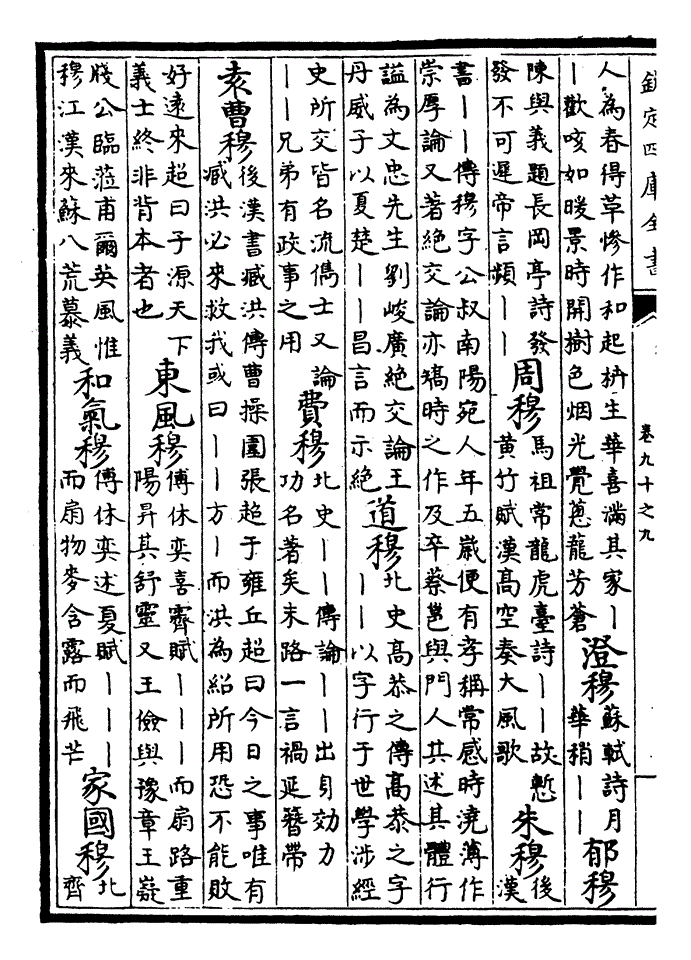 欽定四庫全書
卷九十之九
人為春得草慘作和起枿生華喜滿其家丨
丨歡咳如暖景時開樹色烟光覺蔥蘢芳蒼
澄穆
蘇軾詩月
華稍丨丨
郁穆
陳與義題長岡亭詩發
發不可遲帝言頻丨丨
周穆
馬祖常龍虎臺詩丨丨故慙
黄竹賦漢高空奏大風歌
朱穆
後
漢
書丨丨傳穆字公叔南陽宛人年五歲便有孝稱常感時澆薄作
崇厚論又著絶交論亦矯時之作及卒蔡邕與門人共述其體行
謚為文忠先生劉峻廣絶交論王
丹威子以夏楚丨丨昌言而示絶
道穆
北史高恭之傳高恭之字
丨丨以字行于世學涉經
史所交皆名流儁士又論
丨丨兄弟有政事之用
費穆
北史丨丨傳論丨丨出身効力
功名著矣末路一言禍延簪帶
袁曹穆
後漢書臧洪傳曹操圍張超于雍丘超曰今日之事唯有
臧洪必來救我或曰丨丨方丨而洪為紹所用恐不能敗
好遠來超曰子源天下
義士終非背本者也
東風穆
傅休奕喜霽賦丨丨丨而扇路重
陽昇其舒靈又王儉與豫章王嶷
牋公臨蒞甫爾英風惟
穆江漢來蘇八荒慕義
和氣穆
傅休奕述夏賦丨丨丨
而扇物麥含露而飛芒
家國穆
北
齊